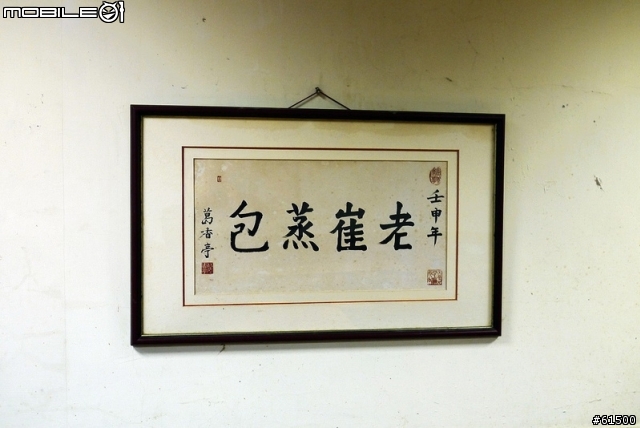 MOBILE01
壬申年
老崔蒸包
萬香亭
#61500